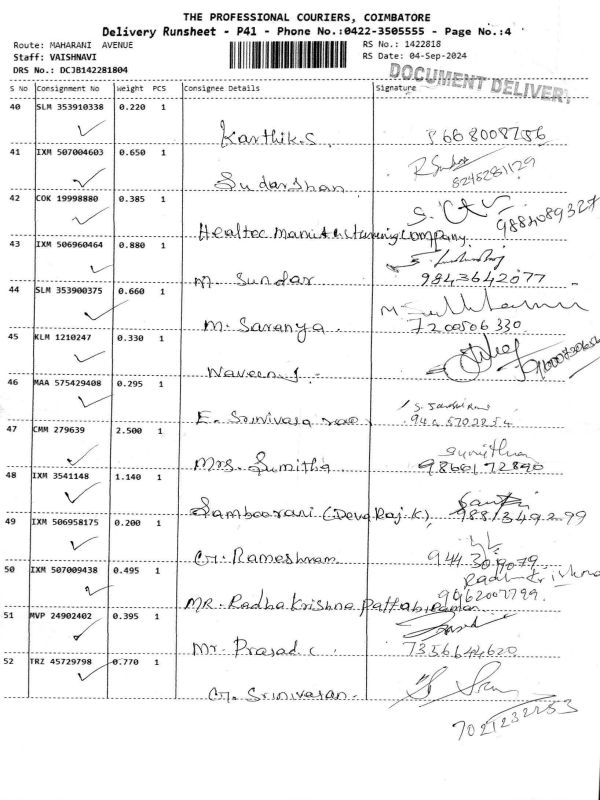 THE PROFESSIONAL COURIERS, COIMBATORE
Delivery Runsheet - P41 - Phone No.:0422-3505555 - Page No.:4
Route: MAHARANI AVENUE RS No.: 1422818
Staff: VAISHNAVI RS Date: 04-Sep-2024
DRS No.: DCJB142281804
DOCUMENT DELIVERY
S No Consignment No Weight PCS Consignee Details Signature
40 SLM 353910338 0.220 1
Karthik.S
41 IXM 507004603 0.650 1
Sudarshan 8248281129
42 COK 19998880 0.385 1
Healtec Manufacturing company
43 IXM 506960464 0.880 1
M. Sundar 9843642077
44 SLM 353900375 0.660 1
M. Saranya. 7200506330
45 KLM 1210247 0.330 1
Naveen J.
46 MAA 575429408 0.295 1
E. Srinivasa rao
47 CMM 279639 2.500 1
Mrs. Sumitha
48 IXM 3541148 1.140 1
Samboorani (Devaraj.K)
49 IXM 506958175 0.200 1
G. Rameshram
50 IXM 507009438 0.495 1
Radha Krishna
MR. Radha Krishna Pattabiraman 9962007799.
51 MVP 24902402 0.395 1
Mr. Prasad C. 7356644620
52 TRZ 45729798 0.770 1
G. Srinivasan